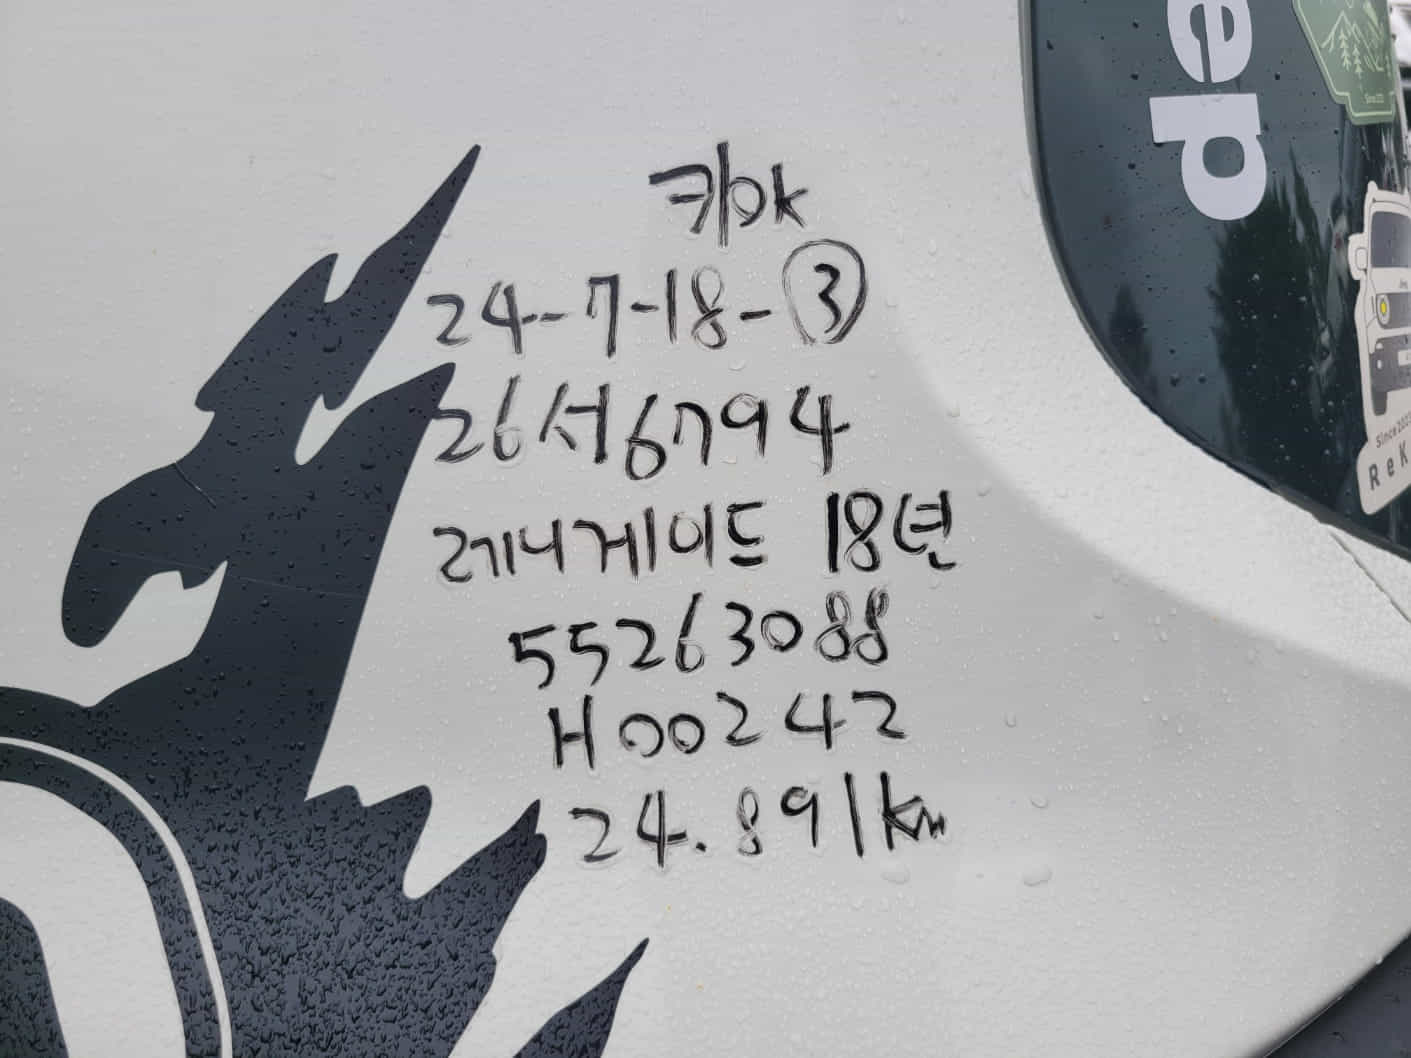 키ok
24-7-18-③
26서6794
레니게이드 18년
55263088
H00242
24.891km
ed
Since 2023
ReK